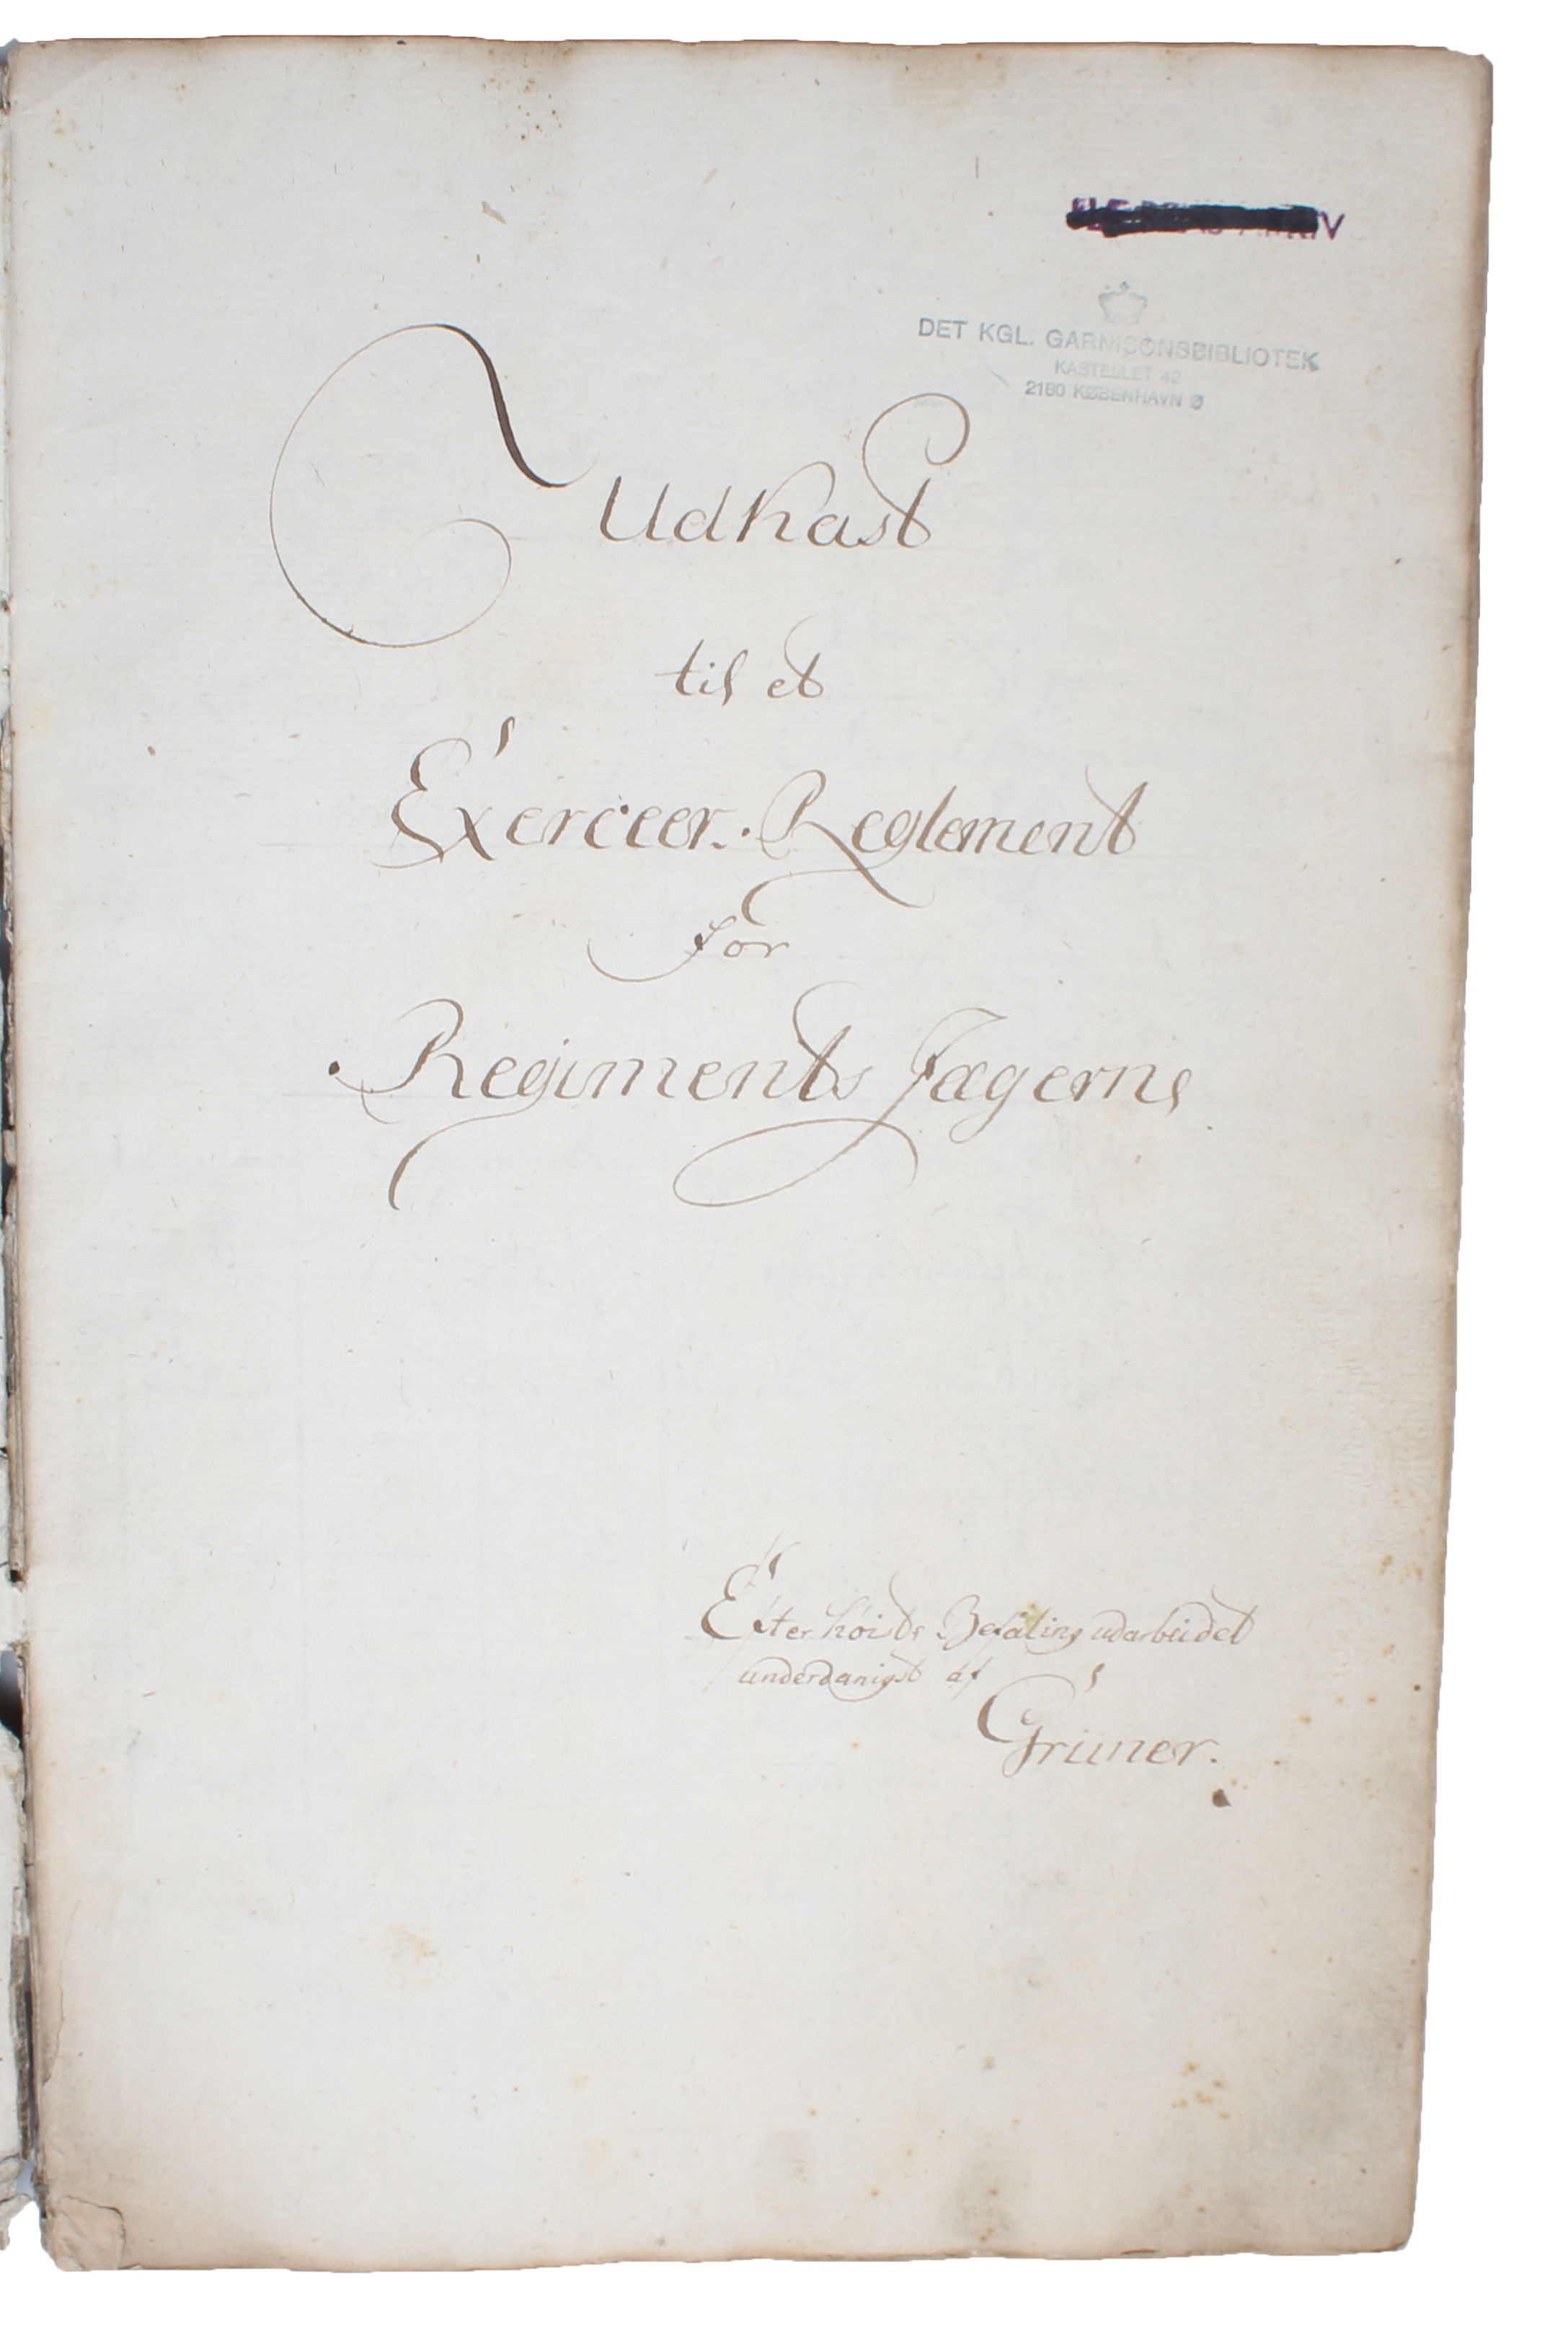 DET KGL. GARNISONSBIBLIOTEK
KASTELLET 42
2100 KØBENHAVN Ø
Udkast
til et
Exerceer-Reglement
for
Regiments Jægerne
Efter høiste Befaling udarbeidet
underdanigst af
Grüner.